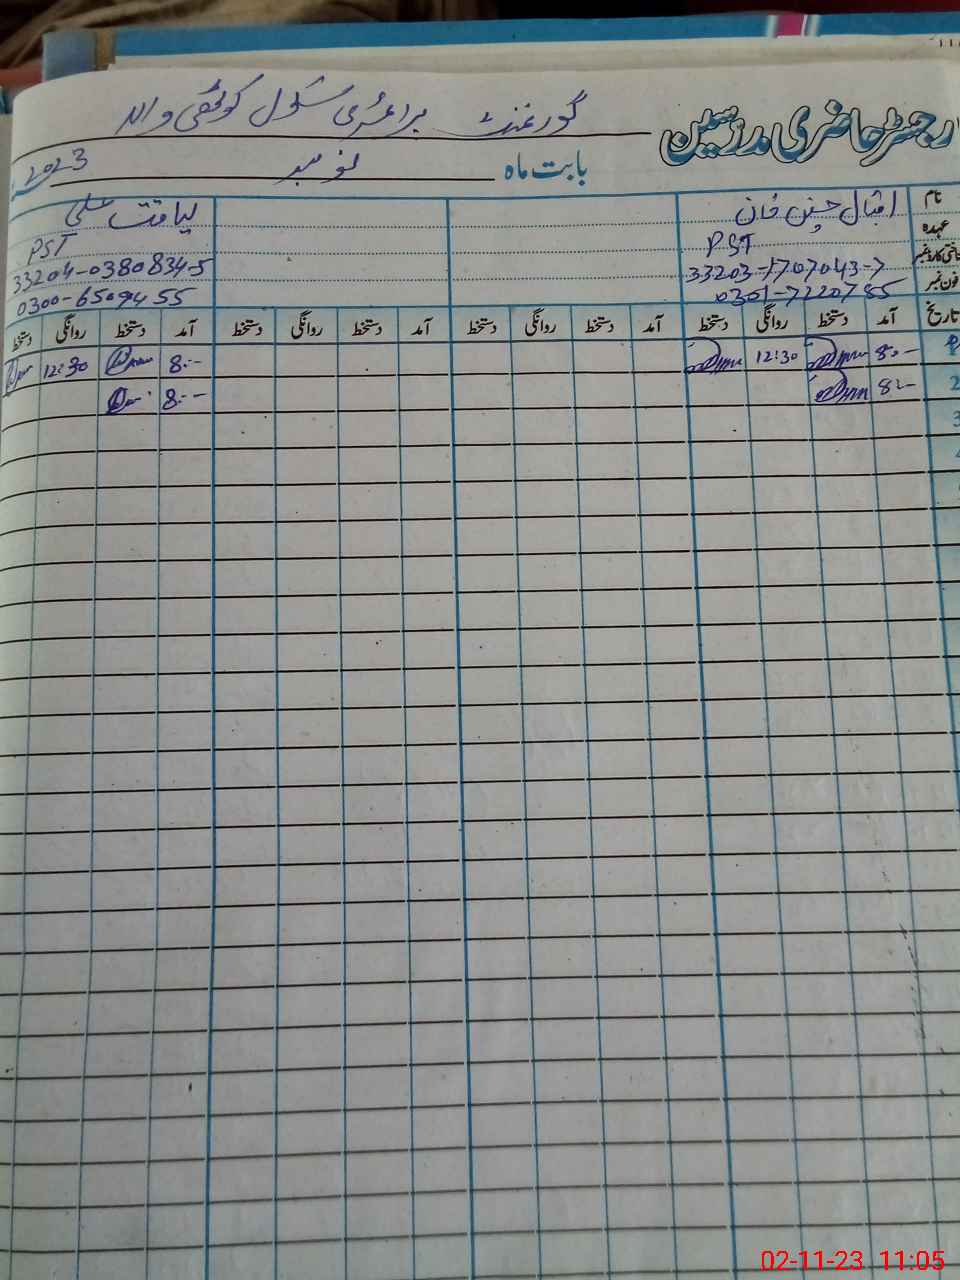 رجسٹر حاضری مدرسین گورنمنٹ پرائمری سکول کوٹھی والا
بابت ماہ نومبر 2023
نام اقبال حسین خان لیاقت علی
عہدہ PST PST
شناختی کارڈ نمبر 33203-1707043-7 33204-0380834-5
فون نمبر 0301-7220785 0300-6509455
تاریخ آمد دستخط روانگی دستخط آمد دستخط روانگی دستخط آمد دستخط روانگی دستخط آمد دستخط روانگی دستخط
1 8:- 12:30 8:- 12:30
2 8:- 8:-
3
4
02-11-23 11:05